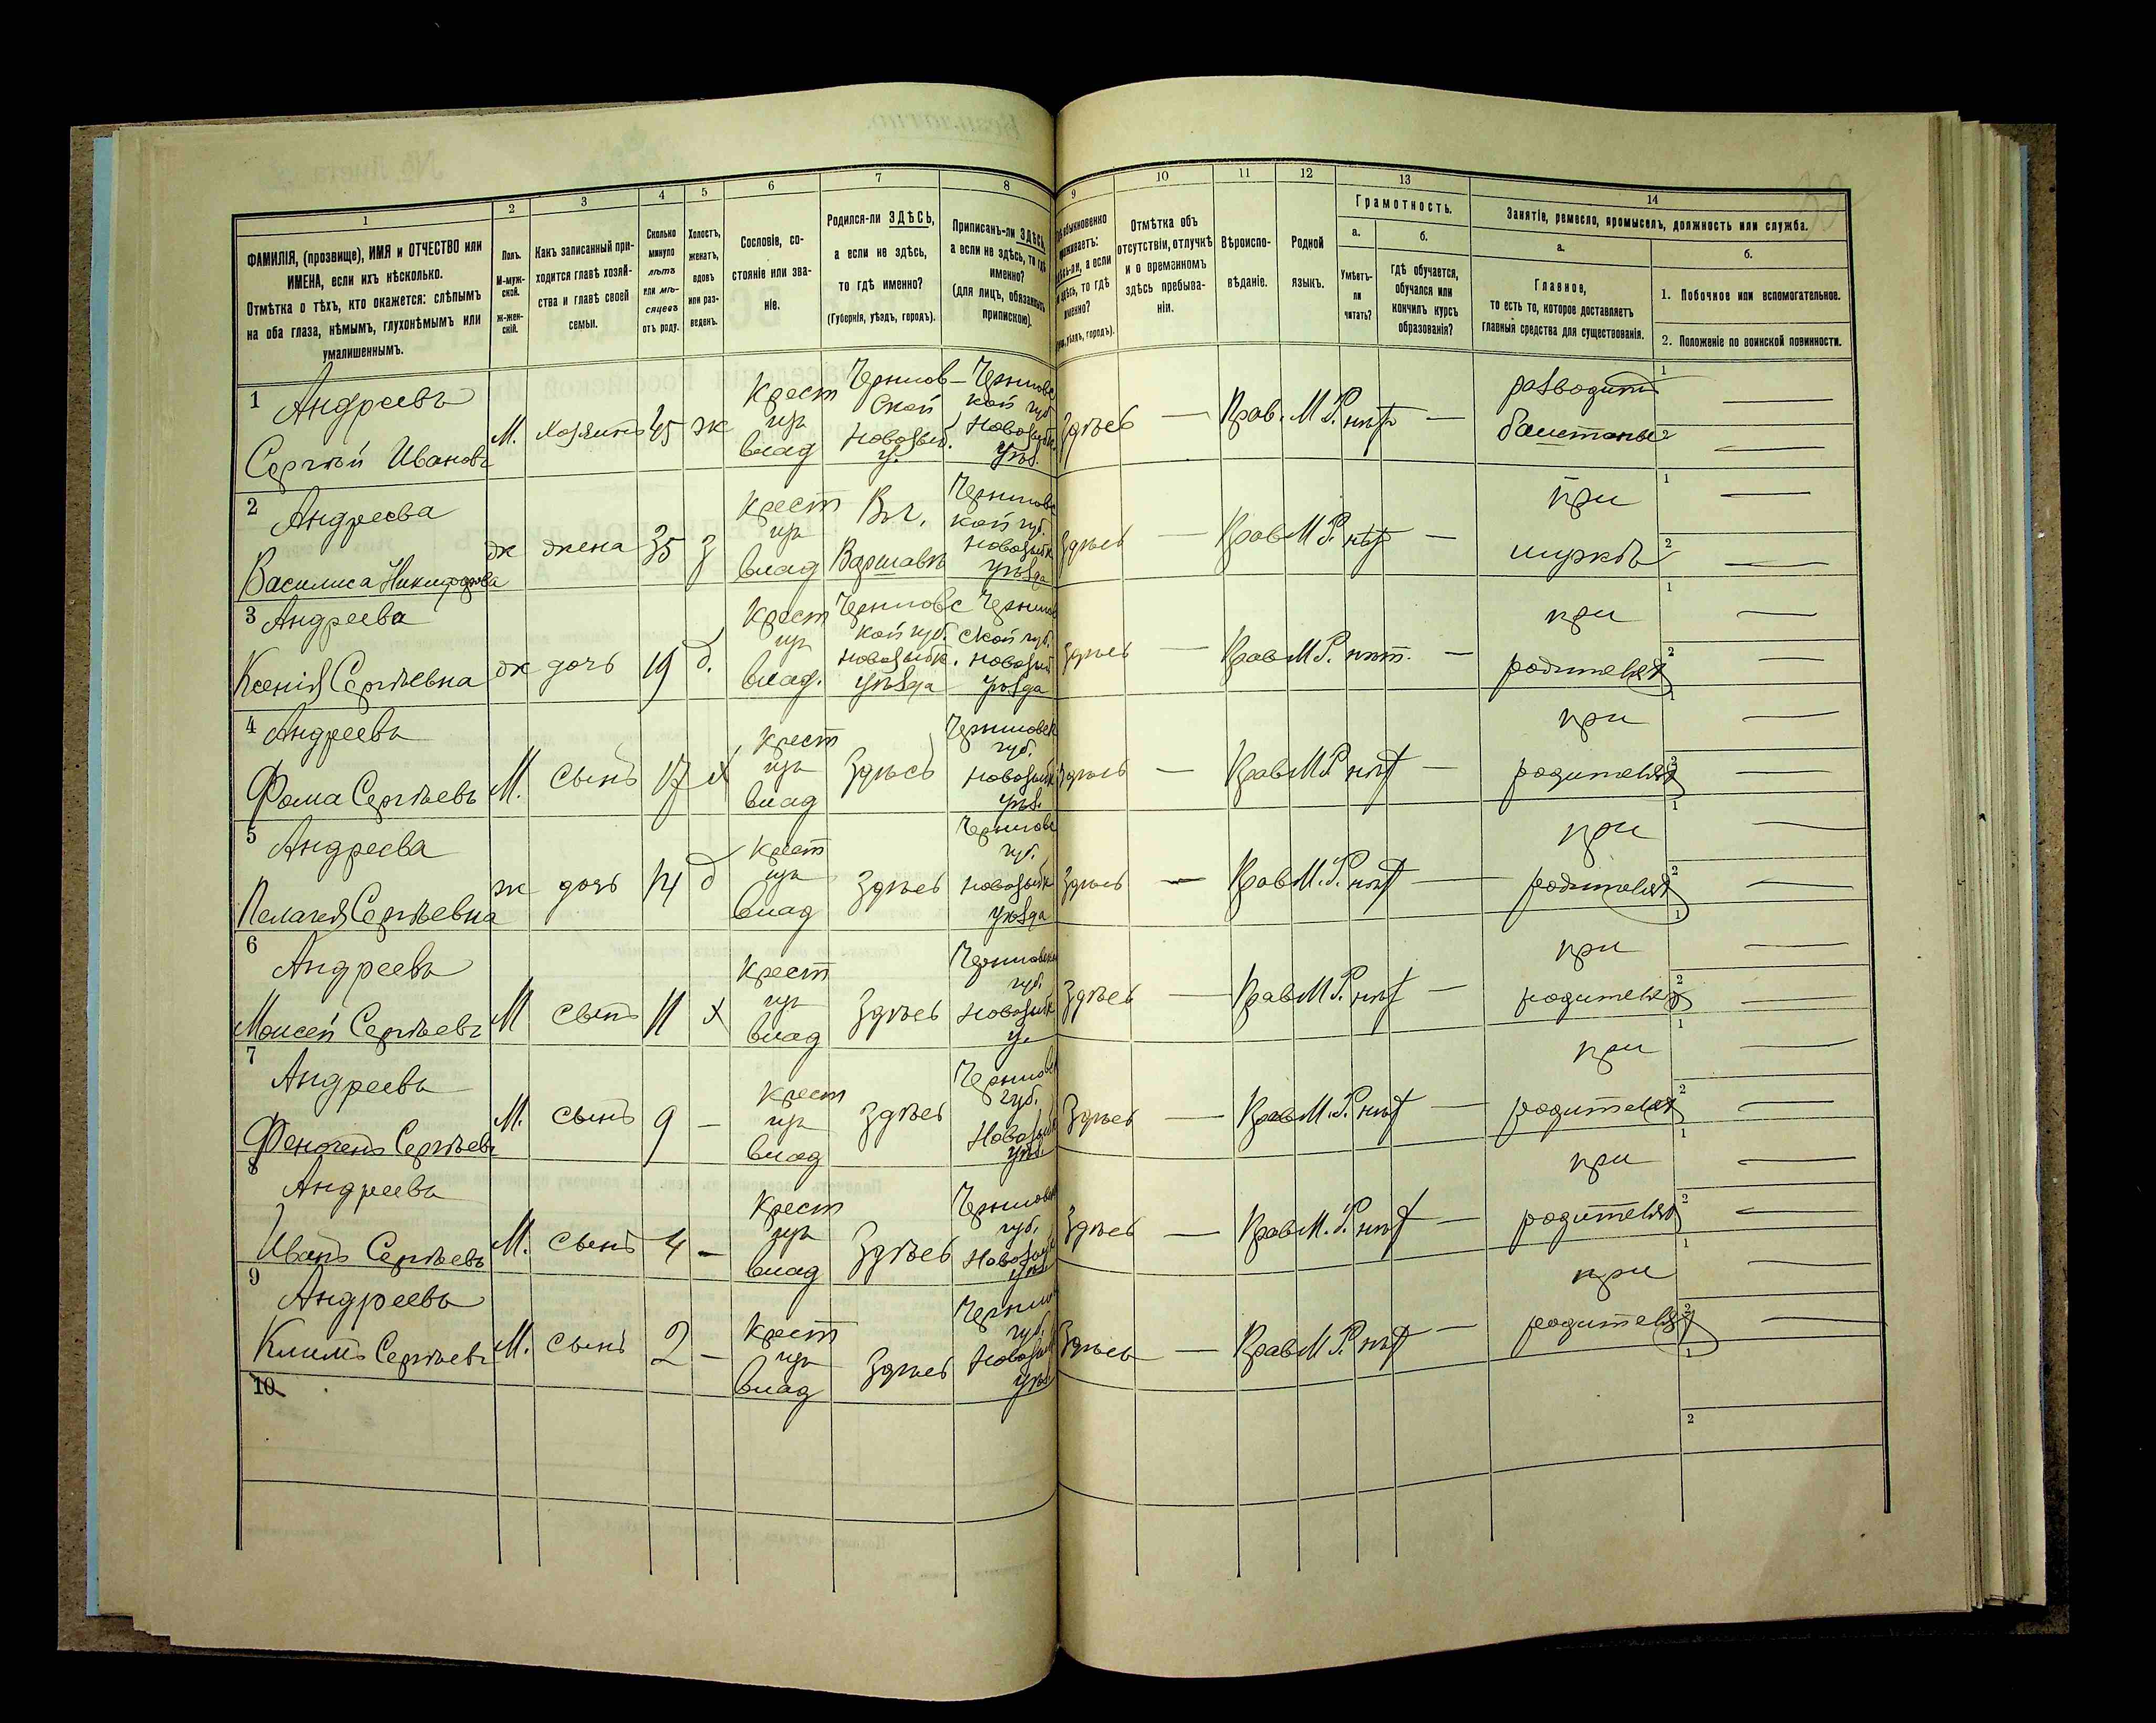 1 2 3 4 5 6 7 8 9 10 11 12 13 14
ФАМИЛІЯ, (прозвище), ИМЯ и ОТЧЕСТВО или
ИМЕНА, если ихъ нѣсколько.
Отмѣтка о тѣхъ, кто окажется: слѣпымъ
на оба глаза, нѣмымъ, глухонѣмымъ или
умалишеннымъ.
Полъ.
М-муж-
ской.
Ж-жен-
скій.
Какъ записанный при-
ходится главѣ хозяй-
ства и главѣ своей
семьи.
Сколько
минуло
лѣтъ
или мѣ-
сяцевъ
отъ роду.
Холостъ,
женатъ,
вдовъ
или раз-
веденъ.
Сословіе, со-
стояніе или зва-
ніе.
Родился-ли ЗДѢСЬ,
а если не здѣсь,
то гдѣ именно?
(Губернія, уѣздъ, городъ).
Приписанъ-ли ЗДѢСЬ,
а если не здѣсь, то гдѣ
именно?
(для лицъ, обязанныхъ
припискою).
обыкновенно
проживаетъ:
здѣсь-ли, а если
не здѣсь, то гдѣ
именно?
уѣздъ, городъ).
Отмѣтка объ
отсутствіи, отлучкѣ
и о временномъ
здѣсь пребыва-
ніи.
Вѣроиспо-
вѣданіе.
Родной
языкъ.
Грамотность.
а.
Умѣетъ-
ли
читать?
б.
Гдѣ обучается,
обучался или
кончилъ курсъ
образованія?
Занятіе, ремесло, промыселъ, должность или служба.
а.
Главное,
то есть то, которое доставляетъ
главныя средства для существованія.
б.
1. Побочное или вспомогательное.
2. Положеніе по воинской повинности.
1 Андреевъ
Сергѣй Ивановъ
М. хозяинъ 45 ж
Крест
изъ
влад
Чернигов-
ской
Новозыб.
у.
Черниговс
кой губ
Новозыбк.
уѣз.
Здѣсь — Прав. М.Р. нѣт —
разводитъ
баштаны
1 —
2 —
2 Андреева
Василиса Никифорова
ж жена 35 з
Крест
изъ
влад
В г.
Варшавѣ
Черниговс
кой губ.
Новозыбк
уѣзда
Здѣсь — Прав М.Р. нѣт —
при
мужѣ
1 —
2 —
3 Андреева
Ксенія Сергѣевна
ж дочь 19 д.
Крест
изъ
влад.
Черниговс
кой губ.
Новозыбк.
уѣзда
Чернигов
ской губ.
Новозыб
уѣзда
Здѣсь — Прав М.Р. нѣт. —
при
родителях
1 —
2 —
4 Андреевъ
Фома Сергѣевъ
М. сынъ 17 х
Крест
изъ
влад
Здѣсь
Черниговск
губ.
Новозыбк
уѣз.
Здѣсь — Прав М.Р. нѣт —
при
родителях
1 —
2 —
5 Андреева
Пелагея Сергѣевна
ж дочь 14 д
Крест
изъ
влад
Здѣсь
Черниговс
губ.
Новозыбк
уѣзда
Здѣсь — Прав М.Р. нѣт —
при
родителях
1 —
2 —
6 Андреевъ
Моисей Сергѣевъ
М сынъ 11 х
Крест
изъ
влад
Здѣсь
Черниговск
губ
Новозыбк
у.
Здѣсь — Прав М.Р. нѣт —
при
родителях
1 —
2 —
7 Андреевъ
Феногенъ Сергѣевъ
М. сынъ 9 —
Крест
изъ
влад
Здѣсь
Черниговск
губ.
Новозыбк
уѣз.
Здѣсь — Прав М.Р. нѣт —
при
родителях
1 —
2 —
8 Андреевъ
Иванъ Сергѣевъ
М. сынъ 4 —
Крест
изъ
влад
Здѣсь
Черниговск
губ.
Новозыб
уѣз
Здѣсь — Прав М.Р. нѣт —
при
родителях
1 —
2 —
9 Андреевъ
Климъ Сергѣевъ
М. сынъ 2 —
Крест
изъ
влад
Здѣсь
Чернигов
губ.
Новозыб
уѣз.
Здѣсь — Прав М.Р. нѣт —
при
родителях
1 —
2 —
10
1
2